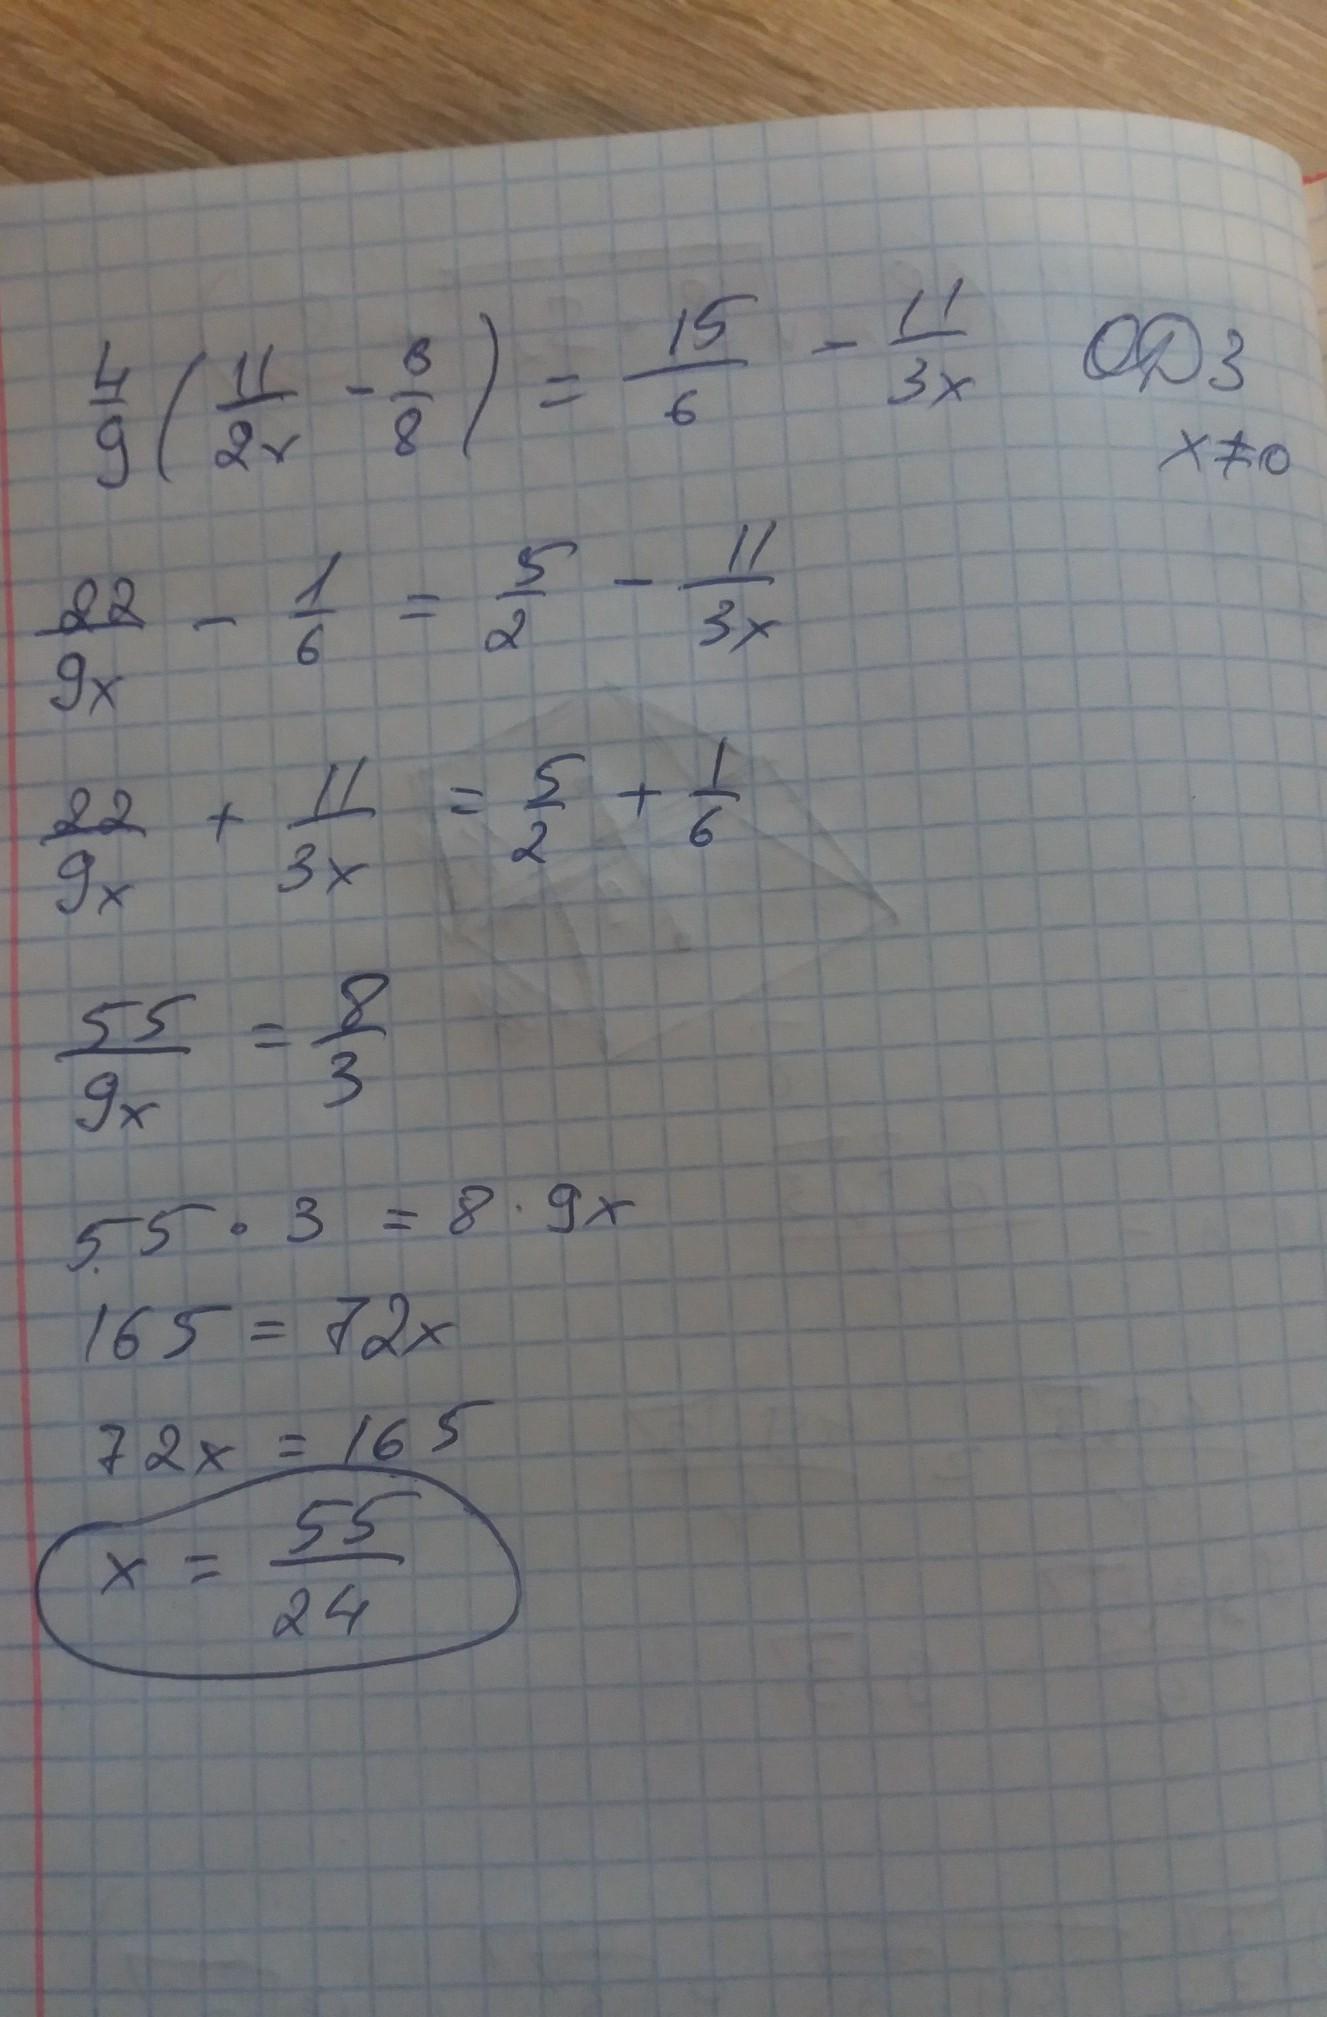 4/9 ( 11/2x - 6/8 ) = 15/6 - 11/3x ОДЗ
x ≠ 0
22/9x - 1/6 = 5/2 - 11/3x
22/9x + 11/3x = 5/2 + 1/6
55/9x = 8/3
55 · 3 = 8 · 9x
165 = 72x
72x = 165
x = 55/24